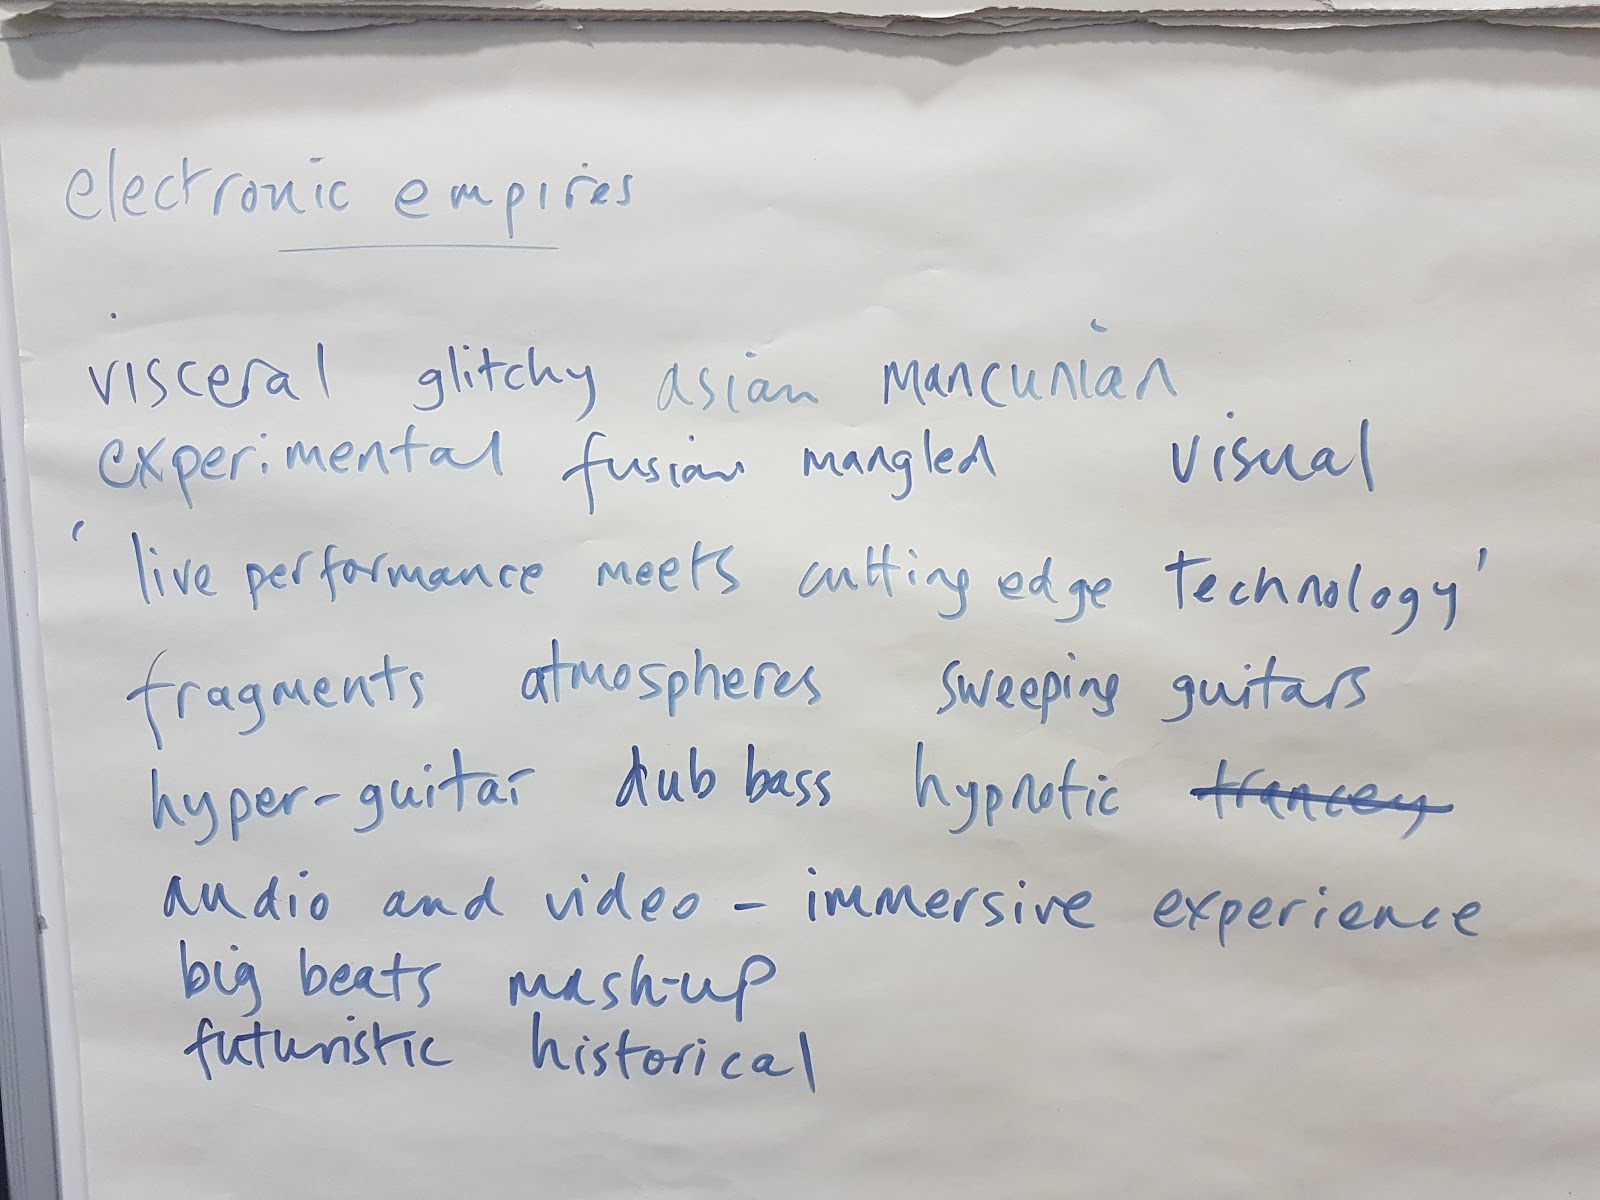 electronic empires
visceral glitchy asian Mancunian
experimental fusion mangled visual
'live performance meets cutting edge technology'
fragments atmospheres sweeping guitars
hyper-guitar dub bass hypnotic trancey
audio and video - immersive experience
big beats mash-up
futuristic historical